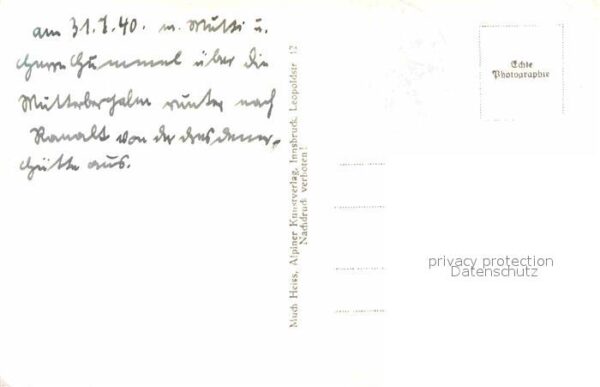 am 31.7.40. m. Mutti u.
Herrn Hummel über die
Mutterbergalm runter nach
Ranalt von der Dresdener-
Hütte aus.
Much Heiss, Alpiner Kunstverlag, Innsbruck, Leopoldstr. 12
Nachdruck verboten!
Echte
Photographie
privacy protection
Datenschutz